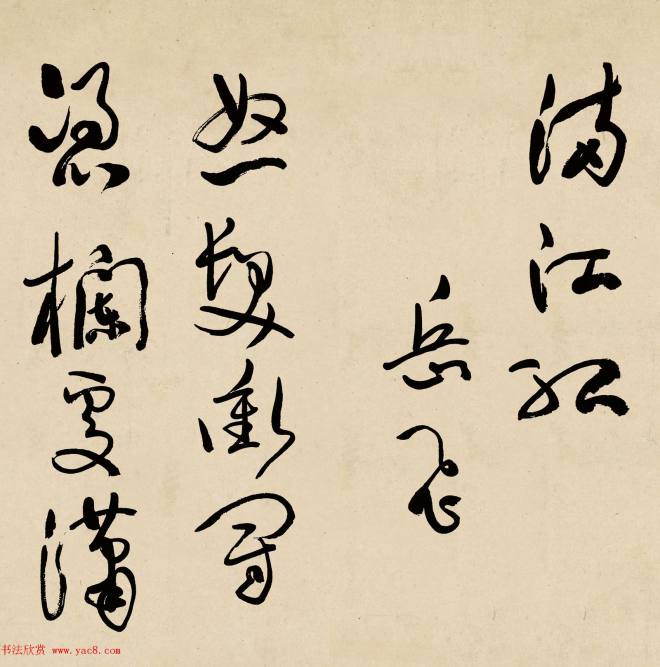 满江红
岳飞
怒发冲冠
凭栏处潇
书法欣赏 www.yac8.com